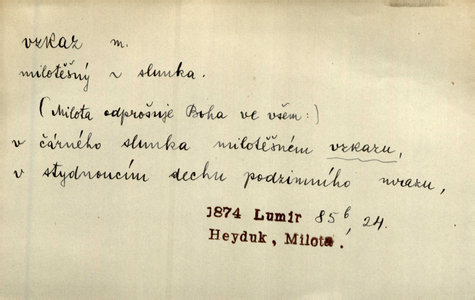 vzkaz m.
milotěšný ~ slunka.
(Milota odprošuje Boha ve všem:)
v čárného slunka milotěšném vzkazu,
v stydnoucím dechu podzimního mrazu,
1874 Lumír 85b, 24.
Heyduk, Milota.